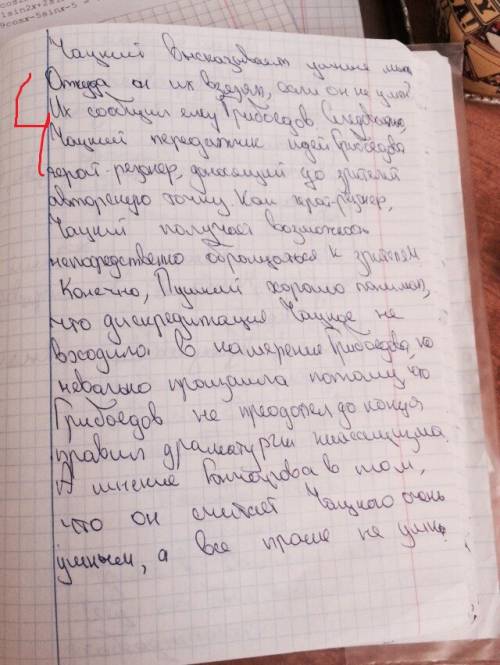 sin2x+2s
9cosx-5sinx-5
Чацкий высказывает умные мы
Откуда он их взял, если он не умен
Их сообщил ему Грибоедов Следовательно,
Чацкий передатчик идей Грибоедова
герой-резонер, доносящий до зрителя
авторскую точку. Как герой-резонер,
Чацкий получает возможность
непосредственно обращаться к зрителям
Конечно, Пушкин хорошо понимал,
что дискредитация Чацкого не
входило в намерение Грибоедова, но
невольно произошла потому, что
Грибоедов не преодолел до конца
правил драматургии классицизма.
А мнение Гончарова в том,
что он считает Чацкого очень
умным, а все прочие не умны